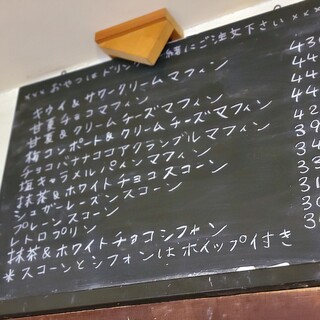 ××× おやつはドリンク 緒にご注文下さい ×××
キウイ&サワークリームマフィン 43
甘夏チョコマフィン 44
甘夏&クリームチーズマフィン 44
梅コンポート&クリームチーズマフィン 44
チョコバナナココアクランブルマフィン 42
塩キャラメルパインマフィン
抹茶&ホワイトチョコスコーン 39
シュガーレーズンスコーン 34
プレーンスコーン 31
レトロプリン 3
抹茶&ホワイトチョコシフォン 3
*スコーンとシフォンはホイップ付き